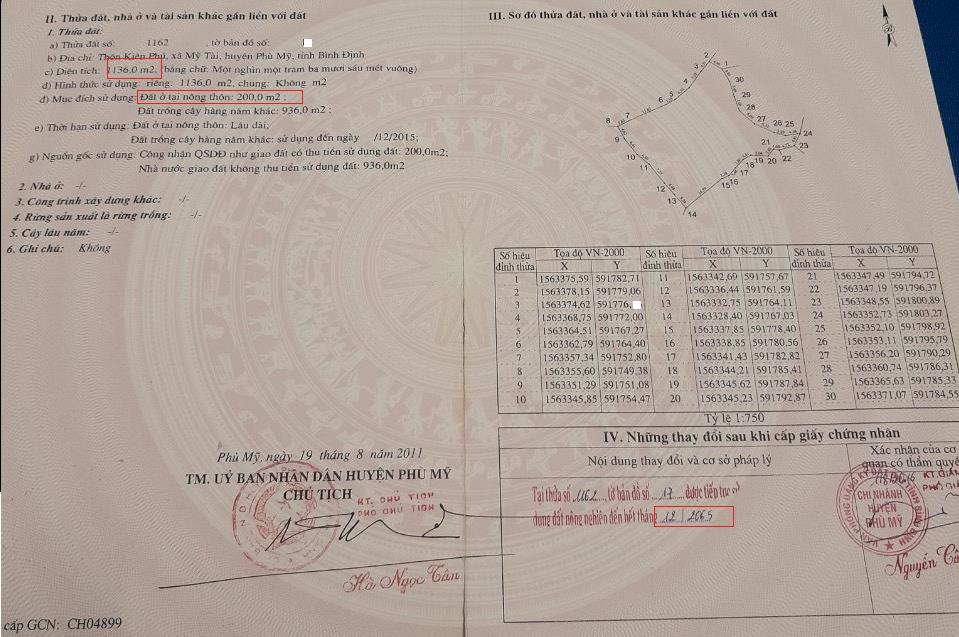 II. Thửa đất, nhà ở và tài sản khác gắn liền với đất
1. Thửa đất:
a) Thửa đất số: 1162 , tờ bản đồ số:
b) Địa chỉ: Thôn Kiên Phú, xã Mỹ Tài, huyện Phù Mỹ, tỉnh Bình Định
c) Diện tích: 1136,0 m2, (bằng chữ: Một nghìn một trăm ba mươi sáu mét vuông)
d) Hình thức sử dụng: riêng: 1136,0 m2, chung: Không m2
đ) Mục đích sử dụng: Đất ở tại nông thôn: 200,0 m2 ;
Đất trồng cây hàng năm khác: 936,0 m2 ;
e) Thời hạn sử dụng: Đất ở tại nông thôn: Lâu dài;
Đất trồng cây hàng năm khác: sử dụng đến ngày /12/2015;
g) Nguồn gốc sử dụng: Công nhận QSDĐ như giao đất có thu tiền sử dụng đất: 200,0m2;
Nhà nước giao đất không thu tiền sử dụng đất: 936,0m2
2. Nhà ở: -/-
3. Công trình xây dựng khác: -/-
4. Rừng sản xuất là rừng trồng: -/-
5. Cây lâu năm: -/-
6. Ghi chú: Không
Phù Mỹ, ngày 19 tháng 8 năm 2011
TM. UỶ BAN NHÂN DÂN HUYỆN PHÙ MỸ
CHỦ TỊCH
KT. CHỦ TỊCH
PHÓ CHỦ TỊCH
Hà Ngọc Tân
cấp GCN: CH04899
III. Sơ đồ thửa đất, nhà ở và tài sản khác gắn liền với đất
1
2
3
4
5
6
7
8
9
10
11
12
13
14
15
16
17
18
19
20
21
22
23
24
25
26
27
28
29
30
Số hiệu đỉnh thửa Tọa độ VN-2000 Số hiệu đỉnh thửa Tọa độ VN-2000 Số hiệu đỉnh thửa Tọa độ VN-2000
X Y X Y X Y
1 1563375,59 591782,71 11 1563342,69 591757,67 21 1563347,49 591794,72
2 1563378,15 591779,06 12 1563336,44 591761,59 22 1563347,19 591796,37
3 1563374,62 591776, 13 1563332,75 591764,11 23 1563348,55 591800,89
4 1563368,75 591772,00 14 1563328,40 591767,03 24 1563352,73 591803,27
5 1563364,51 591767,27 15 1563337,85 591778,40 25 1563352,10 591798,92
6 1563362,79 591764,40 16 1563338,85 591780,56 26 1563353,11 591795,79
7 1563357,34 591752,80 17 1563341,43 591782,82 27 1563356,20 591790,29
8 1563355,60 591749,38 18 1563344,21 591785,41 28 1563360,74 591786,31
9 1563351,29 591751,08 19 1563345,62 591787,84 29 1563365,63 591785,33
10 1563345,85 591754,47 20 1563345,23 591792,87 30 1563371,07 591784,55
Tỷ lệ 1:750
IV. Những thay đổi sau khi cấp giấy chứng nhận
Nội dung thay đổi và cơ sở pháp lý
Xác nhận của cơ
quan có thẩm quyề
Tại thửa số 1162 tờ bản đồ số 17 được tiếp tục sử
dụng đất nông nghiệp đến hết tháng 12 / 2065
CHI NHÁNH
HUYỆN
PHÙ MỸ
Nguyễn